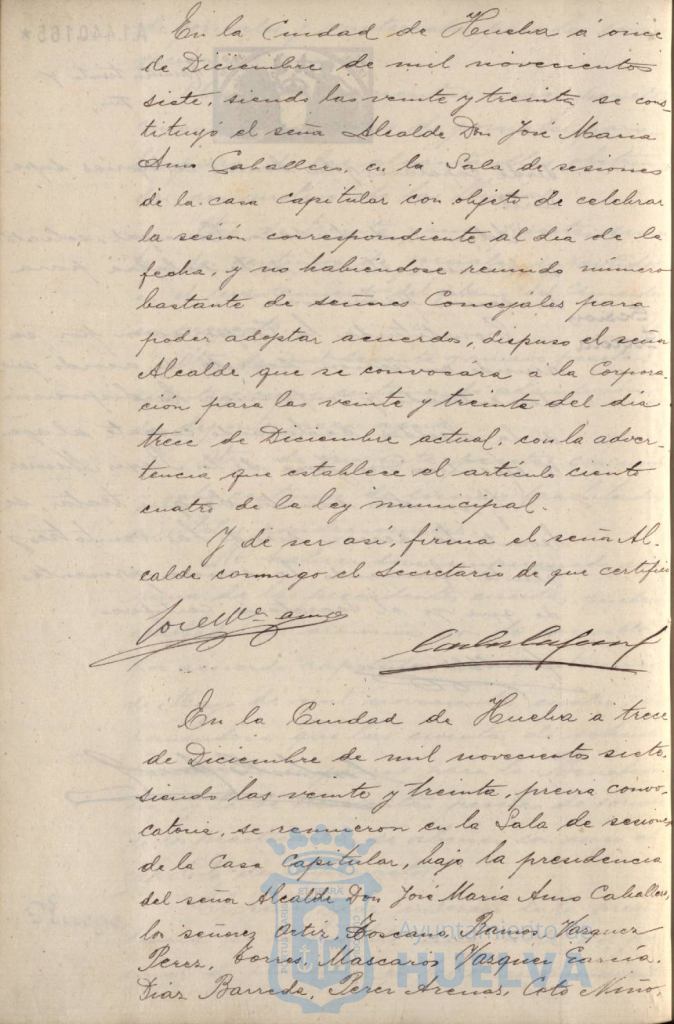 En la Ciudad de Huelva á once
de Diciembre de mil novecientos
siete, siendo las veinte y treinta se cons-
tituyó el señor Alcalde Don José Maria
Amo Caballero, en la Sala de sesiones
de la casa capitular con objeto de celebrar
la sesión correspondiente al día de la
fecha, y no habiéndose reunido número
bastante de señores Concejales para
poder adoptar acuerdos, dispuso el señor
Alcalde que se convocára á la Corpora-
ción para las veinte y treinta del día
trece de Diciembre actual, con la adver-
tencia que establece el artículo ciento
cuatro de la ley municipal.
Y de ser así, firma el señor Al-
calde conmigo el Secretario de que certifico
José Mª Amo
En la Ciudad de Huelva a trece
de Diciembre de mil novecientos siete
siendo las veinte y treinta, previa convo-
catoria, se reunieron en la Sala de sesiones
de la Casa Capitular, bajo la presidencia
del señor Alcalde Don José Maria Amo Caballero,
los señores Ortiz, Toscano, Ramos, Vazquez
Perez, Torres, Mascaros, Vazquez García,
Diaz Barreda, Perez Arenas, Coto Niño,
Ayuntamiento de
HUELVA